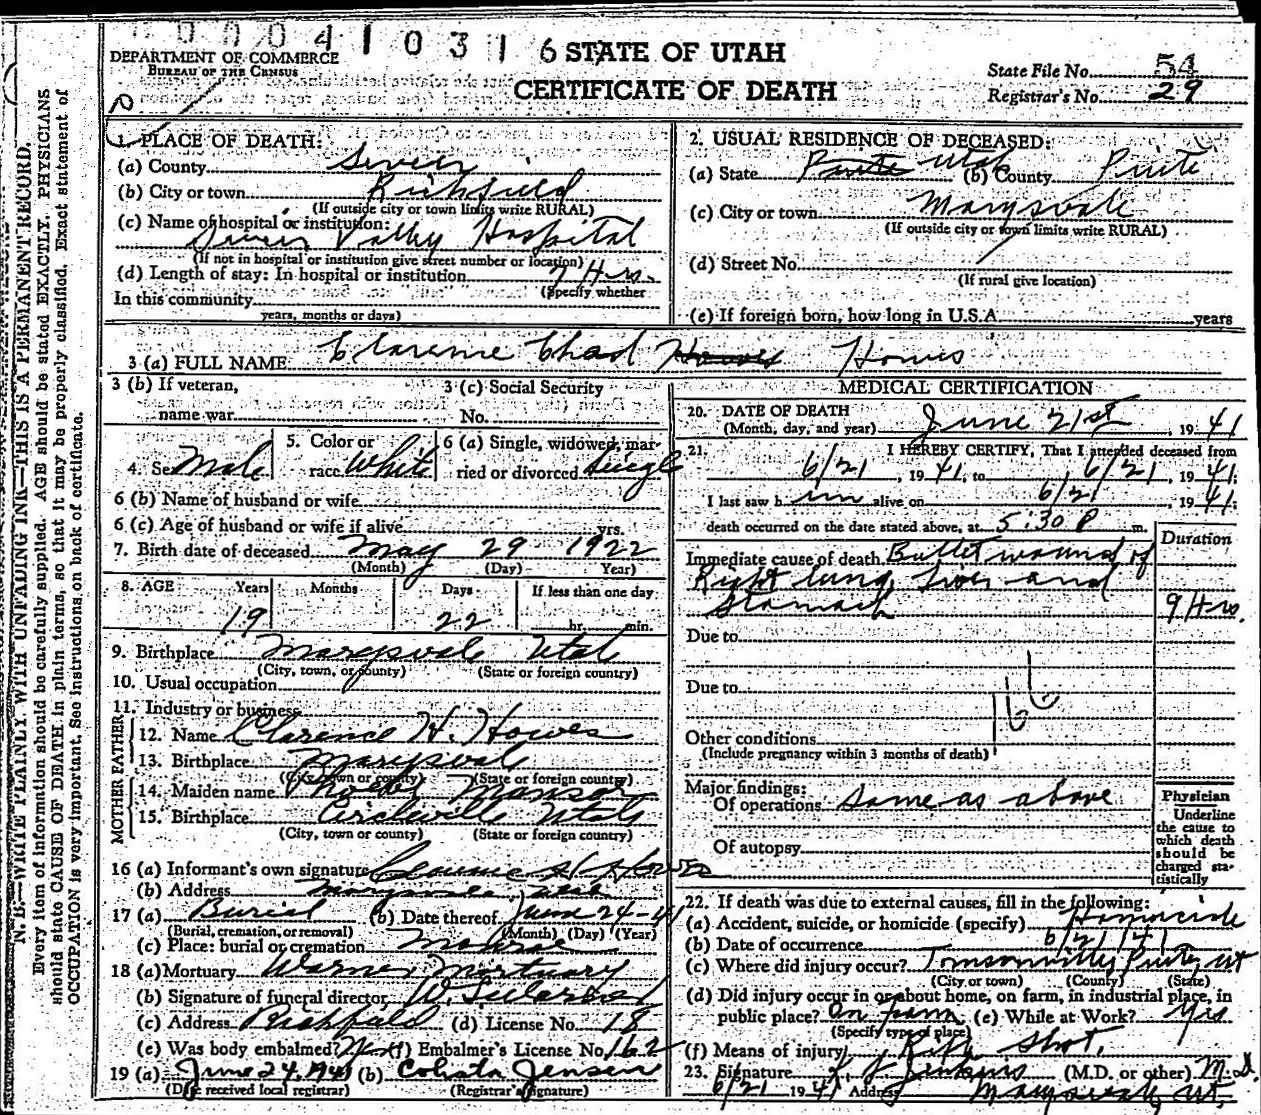 0004 1 0 3 1 6 STATE OF UTAH
DEPARTMENT OF COMMERCE
BUREAU OF THE CENSUS
CERTIFICATE OF DEATH
State File No. 54
Registrar's No. 29
N. B.—WRITE PLAINLY, WITH UNFADING INK—THIS IS A PERMANENT RECORD.
Every item of information should be carefully supplied. AGE should be stated EXACTLY. PHYSICIANS
should state CAUSE OF DEATH in plain terms, so that it may be properly classified. Exact statement of
OCCUPATION is very important. See instructions on back of certificate.
1. PLACE OF DEATH:
(a) County Sevier
(b) City or town Richfield
(If outside city or town limits write RURAL)
(c) Name of hospital or institution:
Sevier Valley Hospital
(If not in hospital or institution give street number or location)
(d) Length of stay: In hospital or institution 7 Hrs.
(Specify whether
In this community
years, months or days)
2. USUAL RESIDENCE OF DECEASED:
(a) State Piute Utah (b) County Piute
(c) City or town Marysvale
(If outside city or town limits write RURAL)
(d) Street No.
(If rural give location)
(e) If foreign born, how long in U.S.A. years
3 (a) FULL NAME Clarence Chad Howes Howes
3 (b) If veteran,
name war
3 (c) Social Security
No.
4. Sex Male
5. Color or
race White
6 (a) Single, widowed, mar-
ried or divorced Single
6 (b) Name of husband or wife
6 (c) Age of husband or wife if alive yrs.
7. Birth date of deceased May 29 1922
(Month) (Day) Year)
8. AGE Years Months Days If less than one day
19 22 hr. min.
9. Birthplace Marysvale Utah
(City, town, or county) (State or foreign country)
10. Usual occupation
11. Industry or business
FATHER
12. Name Clarence H. Howes
13. Birthplace Marysvale
(City, town or county) (State or foreign country)
MOTHER
14. Maiden name Phoebe
15. Birthplace Circleville Utah
(City, town or county) (State or foreign country)
16 (a) Informant's own signature Clarence H. Howes
(b) Address Marysvale Utah
17 (a) Burial (b) Date thereof June 24-41
(Burial, cremation, or removal) (Month) (Day) (Year)
(c) Place: burial or cremation Monroe
18 (a) Mortuary Warner Mortuary
(b) Signature of funeral director W.
(c) Address Richfield (d) License No. 18
(e) Was body embalmed? Yes (f) Embalmer's License No. 162
19 (a) June 24, 1941 (b) Jensen
(Date received local registrar) (Registrar's signature)
MEDICAL CERTIFICATION
20. DATE OF DEATH
(Month, day, and year) June 21st, 19 41
21. I HEREBY CERTIFY, That I attended deceased from
6/21, 19 41, to 6/21, 19 41;
I last saw h im alive on 6/21, 19 41;
death occurred on the date stated above, at 5:30 P m.
Duration
Immediate cause of death Bullet wound of
Right lung, Liver and
Stomach 9 Hrs.
Due to
Due to
166
Other conditions
(Include pregnancy within 3 months of death)
Major findings:
Of operations same as above
Of autopsy
Physician
Underline
the cause to
which death
should be
charged sta-
tistically
22. If death was due to external causes, fill in the following:
(a) Accident, suicide, or homicide (specify) Homicide
(b) Date of occurrence 6/21/41
(c) Where did injury occur? Piute, Ut
(City or town) (County) (State)
(d) Did injury occur in or about home, on farm, in industrial place, in
public place? On farm (e) While at Work? Yes
(Specify type of place)
(f) Means of injury Rifle shot.
23. Signature Jenkins (M.D. or other) M.D.
6/21 19 41 Address Marysvale Ut.